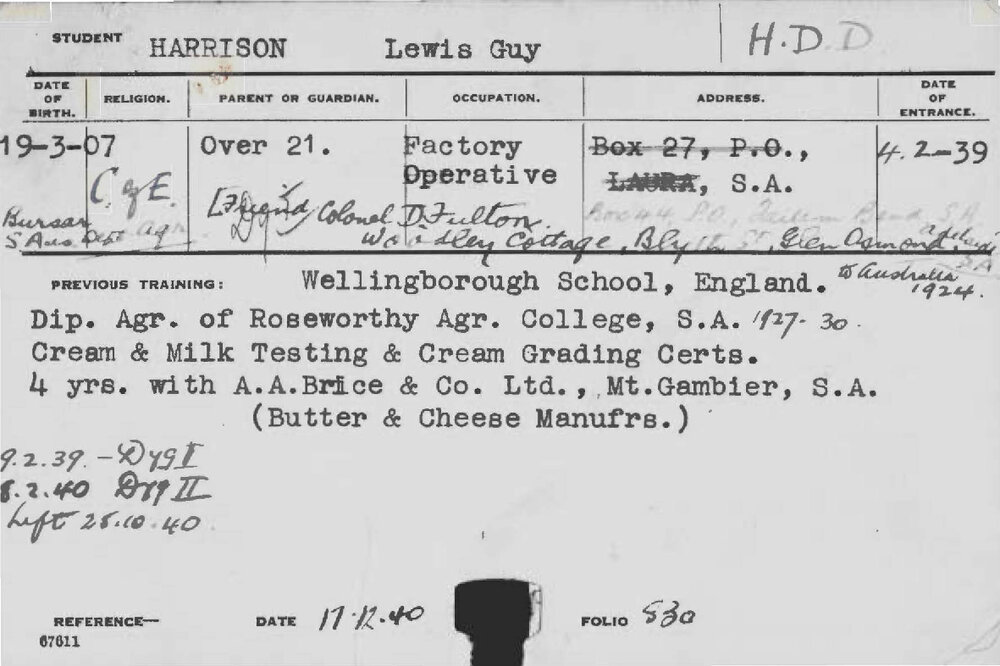 STUDENT HARRISON Lewis Guy H.D.D
DATE OF BIRTH. RELIGION. PARENT OR GUARDIAN. OCCUPATION. ADDRESS. DATE OF ENTRANCE.
19-3-07 Over 21. Factory Box 27, P.O., 4.2-39
C of E. Operative LAURA, S.A.
Bursar [Friend Colonel D. Fulton Box 44 P.O., Bend, S.A
S Aus. Dept Agr. Woodley Cottage, Blyth St, Glen Osmond, Adelaide SA
PREVIOUS TRAINING: Wellingborough School, England. to Australia 1924.
Dip. Agr. of Roseworthy Agr. College, S.A. 1927-30.
Cream & Milk Testing & Cream Grading Certs.
4 yrs. with A.A.Brice & Co. Ltd., Mt.Gambier, S.A.
(Butter & Cheese Manufrs.)
9.2.39. - Dyg I
8.2.40 Dyg II
Left 25.10.40
REFERENCE— DATE 17.12.40 FOLIO 830
67611